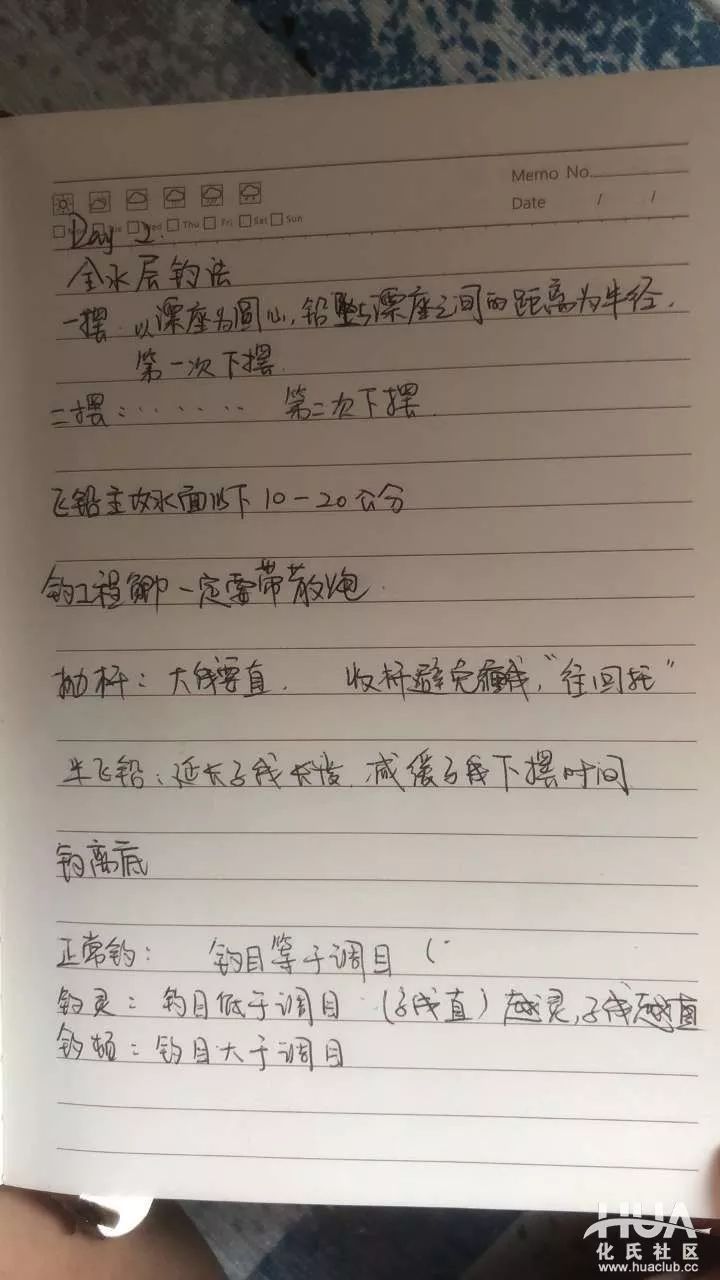 Memo No.
Date / /
Thu Fri Sat Sun
Day 2.
全水层钓法
一摆:以漂座为圆心,铅坠与漂座之间的距离为半径.
第一次下摆.
二摆:······ 第二次下摆.
飞铅主攻水面以下10-20公分
钓工程鲫一定要带散炮.
抛杆:大线要直. 收杆避免线,"往回托"
半飞铅:延长子线长度,减缓子线下摆时间
钓离底
正常钓: 钓目等于调目 (
钓灵:钓目低于调目 (子线直)越灵,子线越直
钓顿:钓目大于调目
HUA
化氏社区
www.huaclub.cc